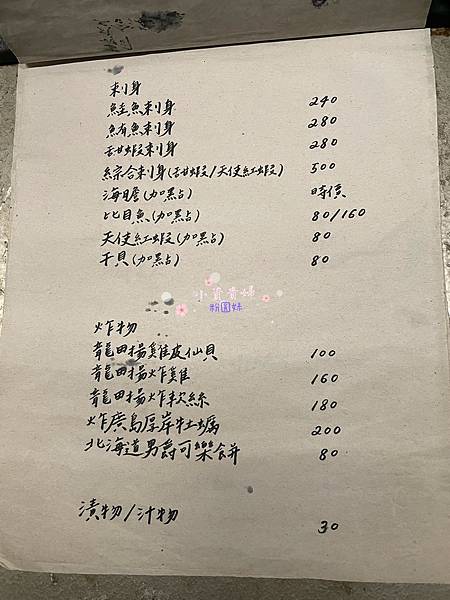 刺身
鮭魚刺身 240
鮪魚刺身 280
甜蝦刺身 280
綜合刺身(甜蝦/天使紅蝦) 500
海膽(加點) 時價
比目魚(加點) 80/160
天使紅蝦(加點) 80
干貝(加點) 80
小資貴婦
粉圓妹
炸物
龍田揚雞皮仙貝 100
龍田揚炸雞 160
龍田揚炸軟絲 180
炸廣島厚岸牡蠣 200
北海道男爵可樂餅 80
漬物/汁物 30